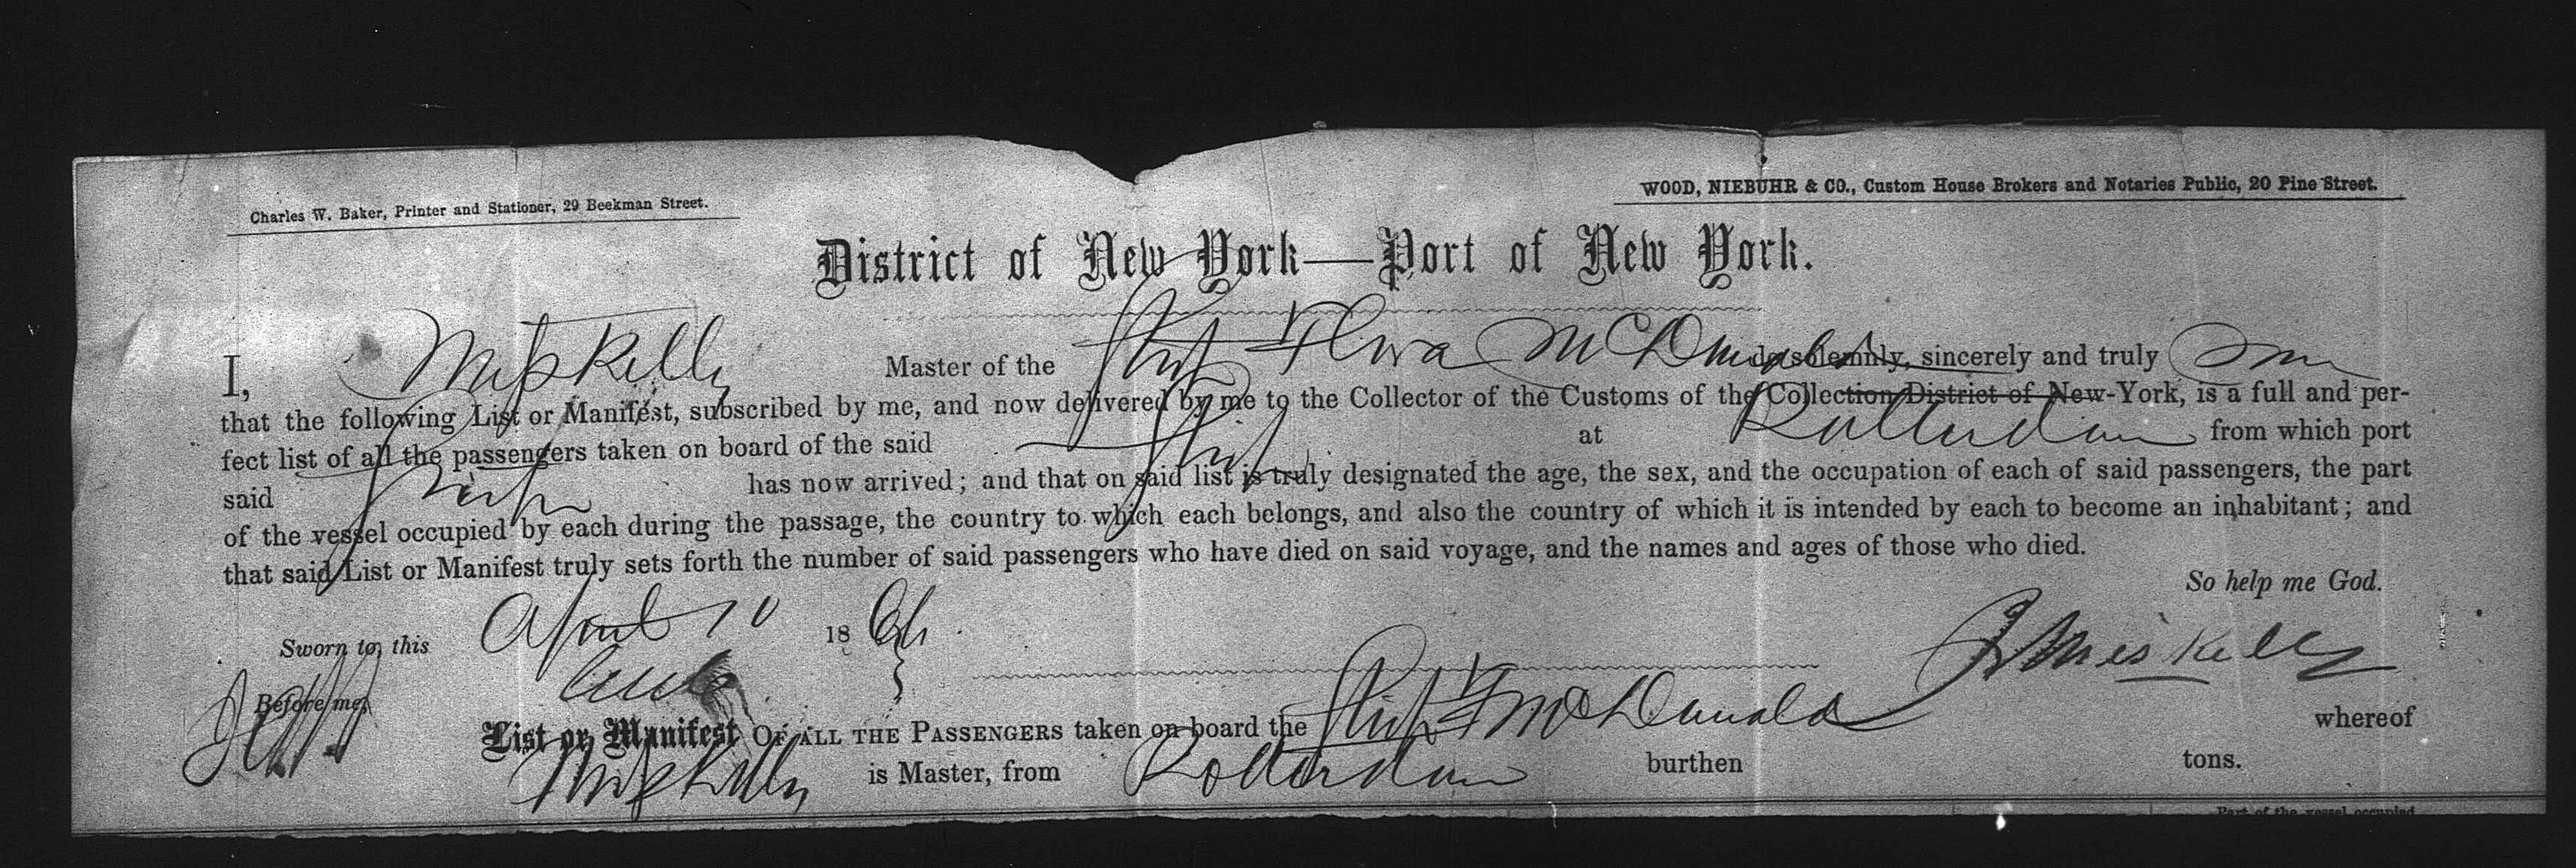 Charles W. Baker, Printer and Stationer, 29 Beekman Street.
WOOD, NIEBUHR & CO., Custom House Brokers and Notaries Public, 20 Pine Street.
District of New York—Port of New York.
I, Miskelly Master of the Ship Flora McDonald do solemnly, sincerely and truly
that the following List or Manifest, subscribed by me, and now delivered by me to the Collector of the Customs of the Collection District of New-York, is a full and per-
fect list of all the passengers taken on board of the said Ship at Rotterdam from which port
said Ship has now arrived; and that on said list is truly designated the age, the sex, and the occupation of each of said passengers, the part
of the vessel occupied by each during the passage, the country to which each belongs, and also the country of which it is intended by each to become an inhabitant; and
that said List or Manifest truly sets forth the number of said passengers who have died on said voyage, and the names and ages of those who died.
So help me God.
Sworn to this April 10 18
Before me,
Miskelly
List or Manifest OF ALL THE PASSENGERS taken on board the Ship F McDonald whereof
Miskelly is Master, from Rotterdam burthen tons.
Part of the vessel occupied